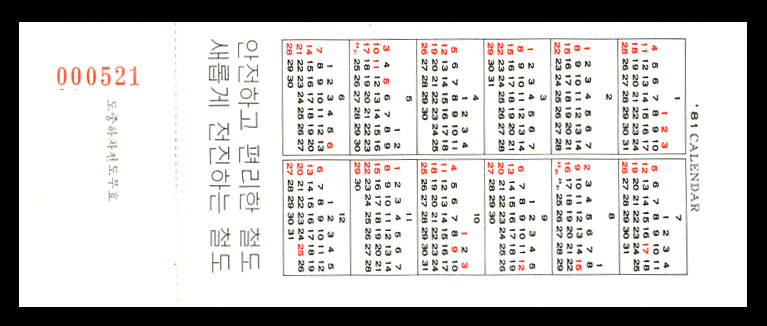 '81 CALENDAR
1
1 2 3
4 5 6 7 8 9 10
11 12 13 14 15 16 17
18 19 20 21 22 23 24
25 26 27 28 29 30 31
7
1 2 3 4
5 6 7 8 9 10 11
12 13 14 15 16 17 18
19 20 21 22 23 24 25
26 27 28 29 30 31
2
1 2 3 4 5 6 7
8 9 10 11 12 13 14
15 16 17 18 19 20 21
22 23 24 25 26 27 28
8
1
2 3 4 5 6 7 8
9 10 11 12 13 14 15
16 17 18 19 20 21 22
23/30 24/31 25 26 27 28 29
3
1 2 3 4 5 6 7
8 9 10 11 12 13 14
15 16 17 18 19 20 21
22 23 24 25 26 27 28
29 30 31
9
1 2 3 4 5
6 7 8 9 10 11 12
13 14 15 16 17 18 19
20 21 22 23 24 25 26
27 28 29 30
4
1 2 3 4
5 6 7 8 9 10 11
12 13 14 15 16 17 18
19 20 21 22 23 24 25
26 27 28 29 30
10
1 2 3
4 5 6 7 8 9 10
11 12 13 14 15 16 17
18 19 20 21 22 23 24
25 26 27 28 29 30 31
5
1 2
3 4 5 6 7 8 9
10 11 12 13 14 15 16
17 18 19 20 21 22 23
24/31 25 26 27 28 29 30
11
1 2 3 4 5 6 7
8 9 10 11 12 13 14
15 16 17 18 19 20 21
22 23 24 25 26 27 28
29 30
6
1 2 3 4 5 6
7 8 9 10 11 12 13
14 15 16 17 18 19 20
21 22 23 24 25 26 27
28 29 30
12
1 2 3 4 5
6 7 8 9 10 11 12
13 14 15 16 17 18 19
20 21 22 23 24 25 26
27 28 29 30 31
안전하고 편리한 철도
새롭게 전진하는 철도
도중하차전도무효
000521